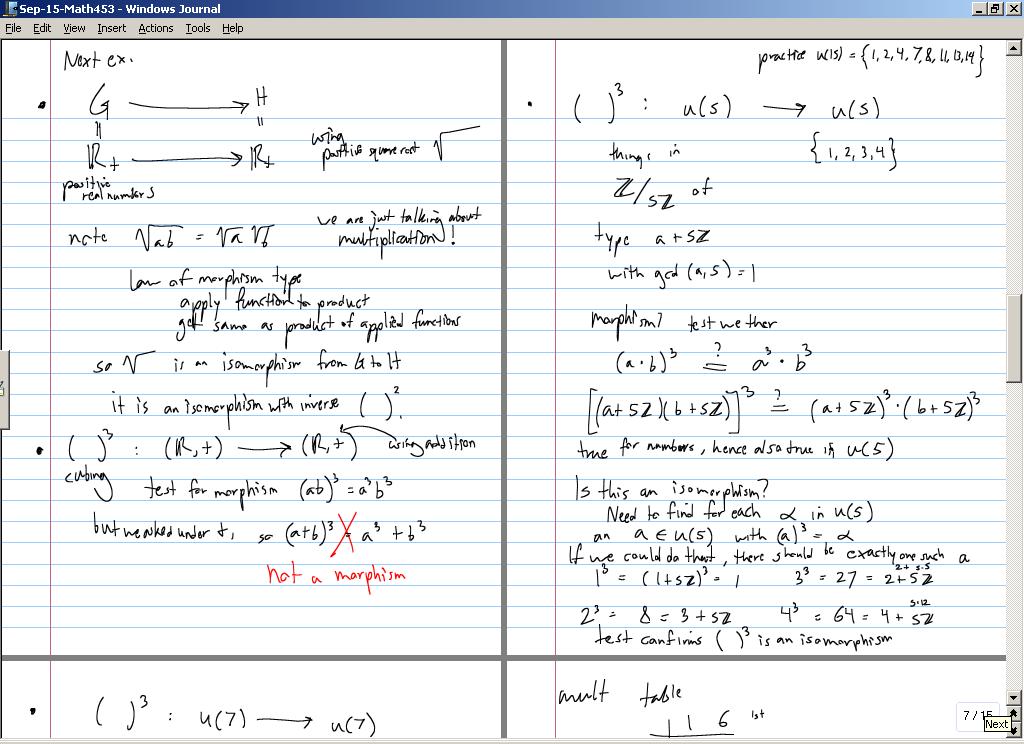 Sep-15-Math453 - Windows Journal
File Edit View Insert Actions Tools Help
Next ex.
• G → H
= =
ℝ+ → ℝ+
positive real numbers
using positive square root √
note √ab = √a √b
we are just talking about multiplication!
law of morphism type
apply function to product
get same as product of applied functions
so √ is an isomorphism from G to H
it is an isomorphism with inverse ( )².
• ( )³ : (ℝ,+) → (ℝ,+) using addition
cubing
test for morphism (ab)³ = a³b³
but we asked under +, so (a+b)³ = a³ + b³
not a morphism
• ( )³ : u(7) → u(7)
practice u(15) = {1,2,4,7,8,11,13,14}
• ( )³ : u(5) → u(5)
{1,2,3,4}
things in
ℤ/5ℤ of
type a+5ℤ
with gcd(a,5)=1
morphism? test wether
(a·b)³ ?= a³·b³
[(a+5ℤ)(b+5ℤ)]³ ?= (a+5ℤ)³·(b+5ℤ)³
true for numbers, hence also true in u(5)
Is this an isomorphism?
Need to find for each α in u(5)
an a ∈ u(5) with (a)³ = α
If we could do that, there should be exactly one such a
1³ = (1+5ℤ)³ = 1 3³ = 27 = 2+5ℤ
2+5·5
2³ = 8 = 3+5ℤ 4³ = 64 = 4+5ℤ
5·12
test confirms ( )³ is an isomorphism
mult table
1 6 1st
7 / 15
Next